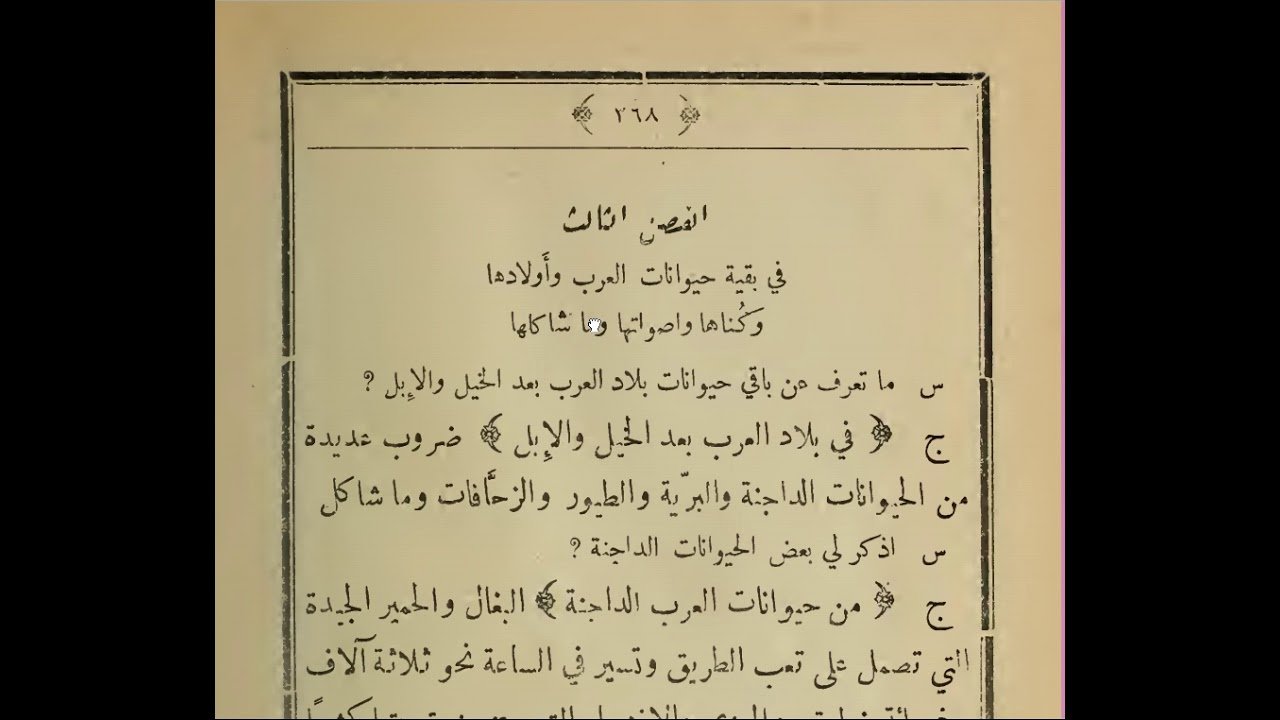 ٣٦٨
الفصل الثالث
في بقية حيوانات العرب وأَولادها
وكُناها واصواتها وما شاكلها
س ما تعرف عن باقي حيوانات بلاد العرب بعد الخيل والاِبل ؟
ج ﴿ في بلاد العرب بعد الخيل والاِبل ﴾ ضروب عديدة
من الحيوانات الداجنة والبرّية والطيور والزحَّافات وما شاكل
س اذكر لي بعض الحيوانات الداجنة ؟
ج ﴿ من حيوانات العرب الداجنة ﴾ البغال والحمير الجيدة
التي تصمل على تعب الطريق وتسير في الساعة نحو ثلاثة آلاف